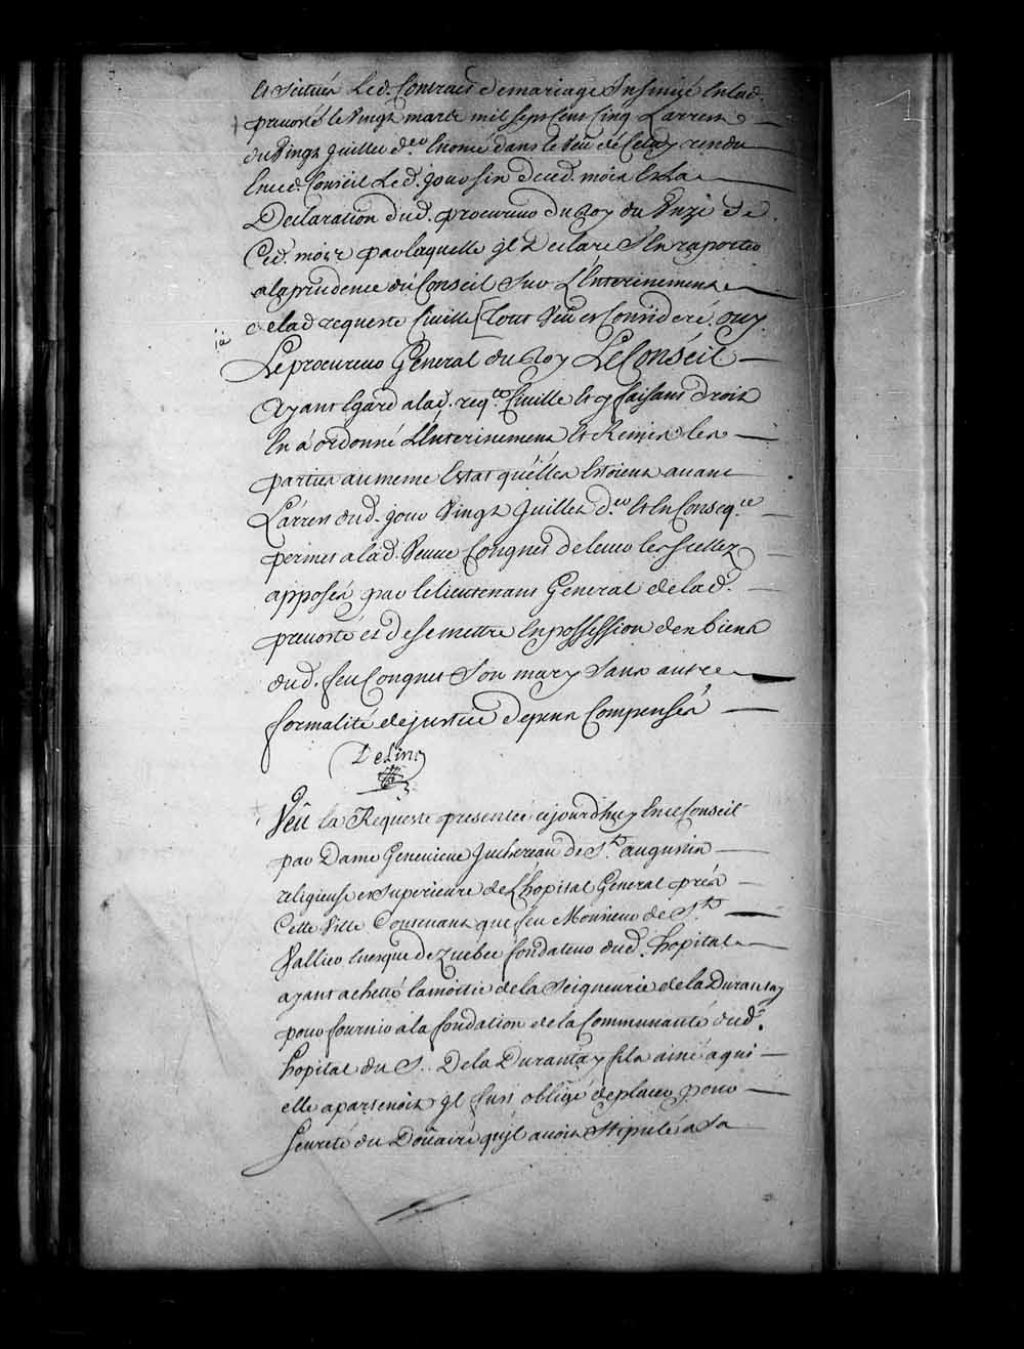 et scituée Led. Contract de mariage Insinué En lad.
prevosté le Vingt marts mil sept Cent Cinq Larrest
du Vingt Juillet d.er Enoncé dans le Veu de Celuy rendu
Enced. Conseil Led. jour six duced. mois Et La
Declaration dud. procureur du Roy du Unze de
Ced. mois par laquelle jl Declare S'En raporter
ala prudence du Conseil Sur L'Enterinement
de lad requeste Civille [tout Veu et Consideré. ouy
Le procureur General du Roy Le Conseil
Ayant Egard alad. req.te Civille Et y faisant droit
En a ordonné L'Enterinement Et Remis les
parties au meme Estat qu'elles Estoient avant
L'arrest dud. jour Vingt Juillet d.er Et En Conseq.ce
permet alad. Veuve Congnet de lever les scellez
apposés par le lieutenant General de lad.
prevosté et de se mettre En possession des biens
dud. feu Congnet Son mary Sans autre
formalité de justice depens Compensés
Delino
Veu la Requeste presentée cejourd'huy En ce Conseil
par Dame Genevieve Juchereau de S.t augustin
religieuse et Superieure de L'hopital General prés
Cette Ville Contenant que feu Monsieur de S.t
Vallier Evesque de Quebec fondateur dud. hopital
ayant achetté la moitié de la Seigneurie de la Durantay
pour fournir à la fondation de la Communauté dud.
hopital du S. De la Durantay fils ainé a qui
elle apartenoit jl fust obligé de placer pour
Seureté du Doüaire qu'jl avoit Stipulé a Sa